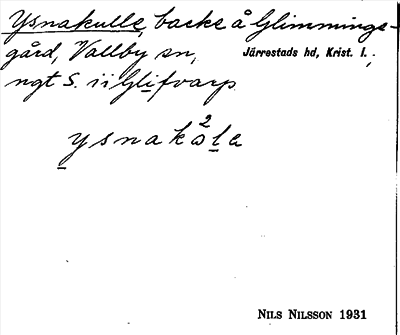 Ysnakulle, backe å Glimminge-
gård, Vallby sn, Järrestads hd, Krist. l.
ngt S. ii Glifvarp.
ysnakåla
NILS NILSSON 1931